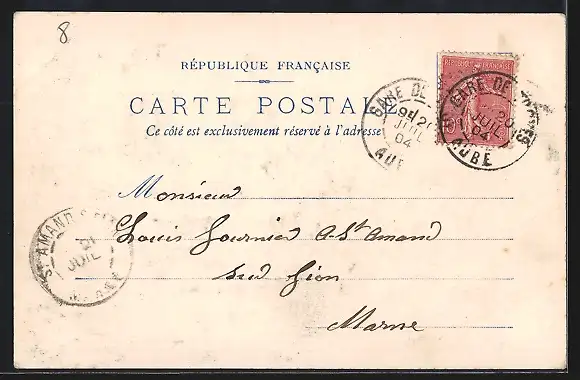 8
RÉPUBLIQUE FRANÇAISE
CARTE POSTALE
Ce côté est exclusivement réservé à l'adresse
REPUBLIQUE FRANÇAISE
GARE DE
JUIL
04
AUBE
GARE DE TROYES
20
JUIL
04
AUBE
Monsieur
Louis Fournier à St Amand
sur Fion
Marne
ST AMAND
21
JUIL
MARNE